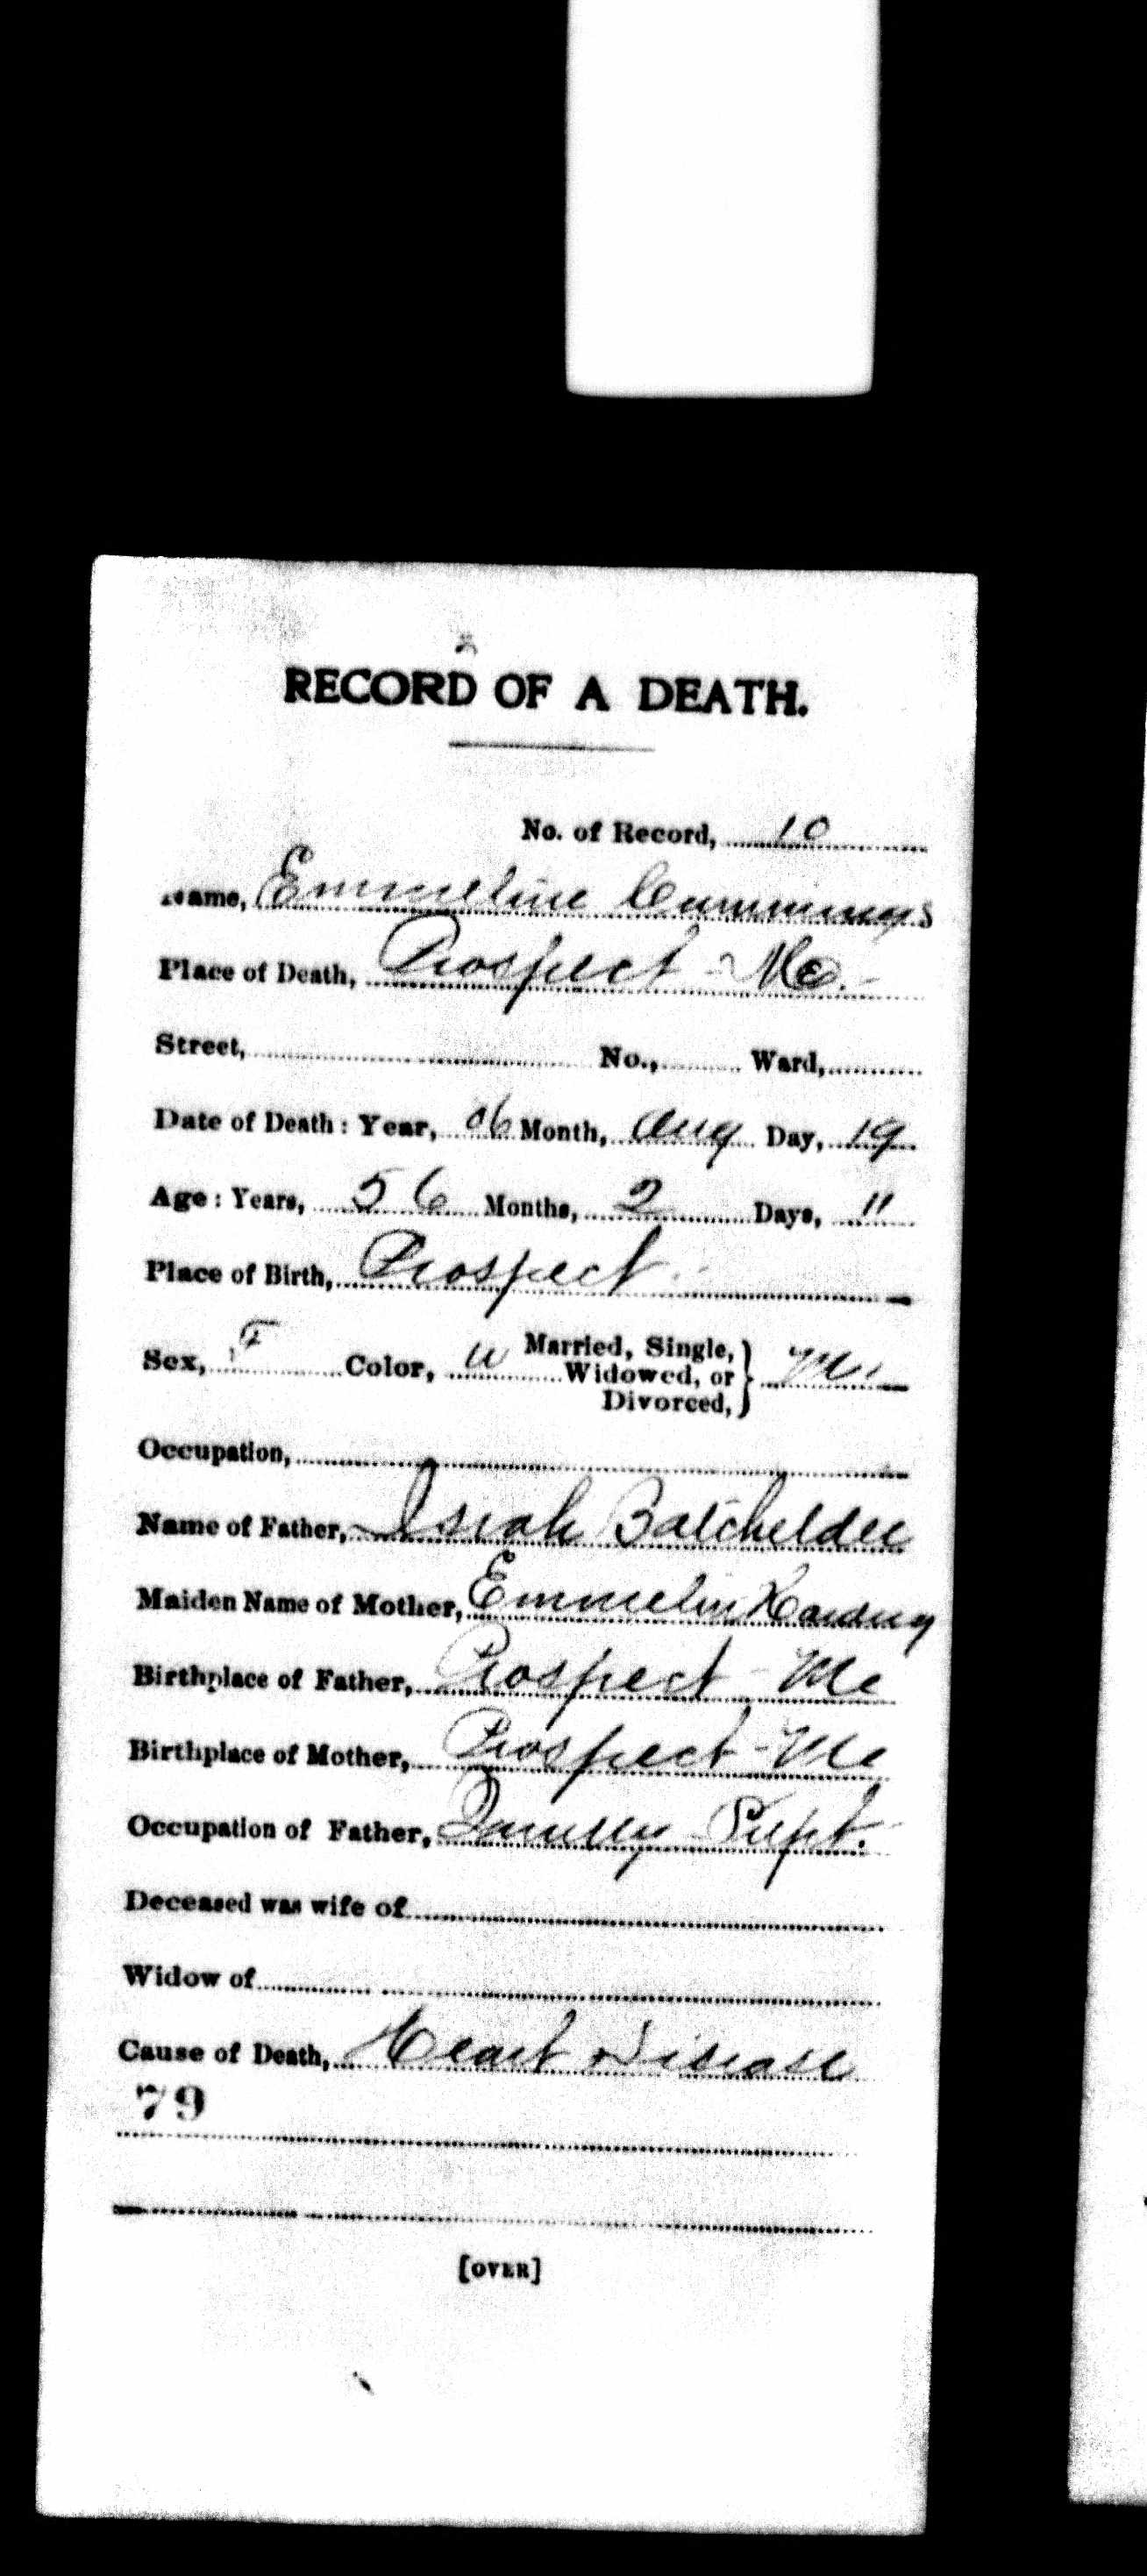 RECORD OF A DEATH.
No. of Record, 10
Name, Emmeline Cummings
Place of Death, Prospect - Me.
Street, No., Ward,
Date of Death: Year, 06 Month, Aug Day, 19
Age: Years, 56 Months, 2 Days, 11
Place of Birth, Prospect
Sex, F Color, W Married, Single, Widowed, or Divorced, M.
Occupation,
Name of Father, Isiah Batchelder
Maiden Name of Mother, Emmelin Harding
Birthplace of Father, Prospect - Me
Birthplace of Mother, Prospect - Me
Occupation of Father, Supt.
Deceased was wife of
Widow of
Cause of Death, Heart Disease
79
[OVER]